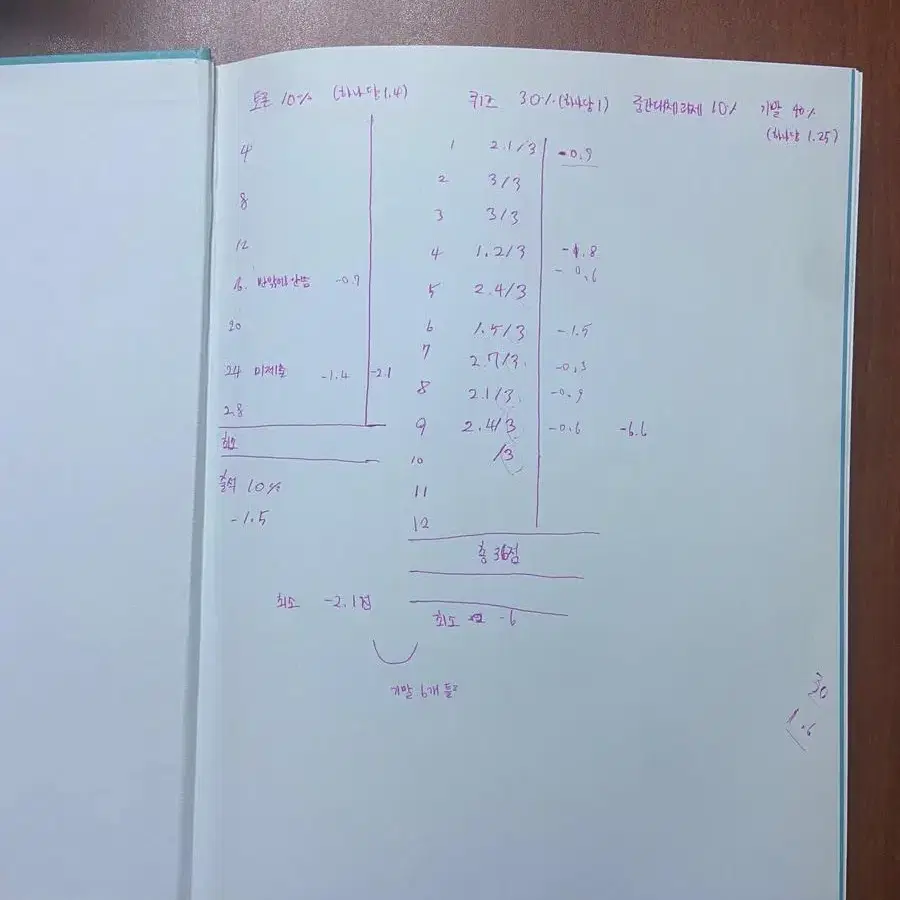 토론 10% (하나당 1.4)
4
8
12
16. 반밖에 안씀 -0.7
20
24 미제출 -1.4 -2.1
28
최소
출석 10%
-1.5
최소 -2.1점
퀴즈 30% (하나당 1)
1 2.1/3 -0.9
2 3/3
3 3/3
4 1.2/3 -1.8
5 2.4/3 -0.6
6 1.5/3 -1.5
7 2.7/3 -0.3
8 2.1/3 -0.9
9 2.4/3 -0.6 -6.6
10 /3
11
12
총 36점
최소 -6
기말 6개 틀
중간대체과제 10%
기말 40%
(하나당 1.25)
30
1.6